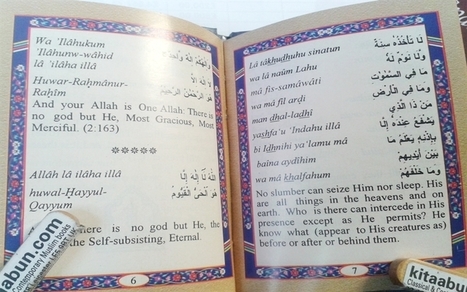 Wa 'Ilâhukum
'Ilâhunw-wâhid
lâ 'ilâha illâ
Huwar-Raḥmânur-
Raḥîm
هُوَ الرَّحْمٰنُ الرَّحِيمُ
And your Allah is One Allah: There is
no god but He, Most Gracious, Most
Merciful. (2:163)
*****
Allâh lâ ilâha illâ
اللَّهُ لَا إِلٰهَ إِلَّا
huwal-Ḥayyul-
Qayyum
هُوَ الْحَيُّ الْقَيُّومُ
there is no god but He, the
the Self-subsisting, Eternal.
6
Lâ tâkhudhuhu sinatun
لَا تَأْخُذُهُ سِنَةٌ
wa lâ naúm Lahu
وَلَا نَوْمٌ لَهُ
mâ fis-samâwâti
مَا فِي السَّمٰوٰتِ
wa mâ fil ardi
وَمَا فِي الْأَرْضِ
man dhal-ladhî
مَنْ ذَا الَّذِي
yashfa'u 'Indahu illâ
يَشْفَعُ عِنْدَهُ إِلَّا
bi Idhnihi ya'lamu mâ
بِإِذْنِهِ يَعْلَمُ مَا
baîna aydihim
بَيْنَ أَيْدِيهِمْ
wa mâ khalfahum
وَمَا خَلْفَهُمْ
No slumber can seize Him nor sleep. His
are all things in the heavens and on
earth. Who is there can intercede in His
presence except as He permits? He
know what (appear to His creatures as)
before or after or behind them.
7
abun.com
Contemporary Muslim books
kitaabun
Classical &